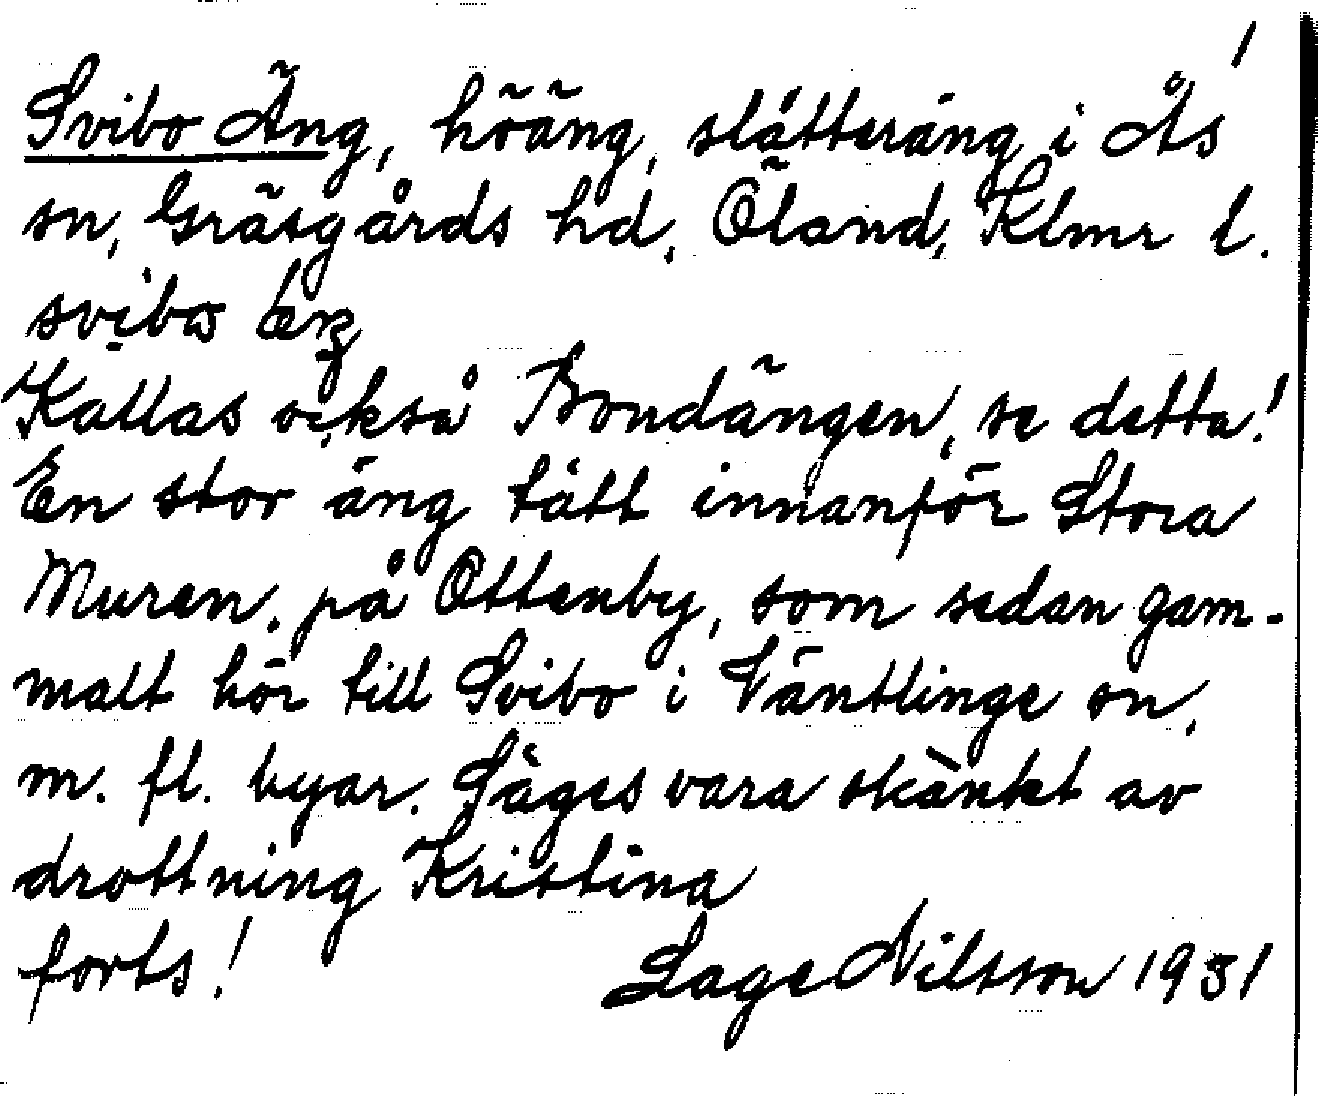 1
Svibo Äng, höäng, slätteräng i Ås
sn, Gräsgårds hd, Öland, Klmr l.
Kallas också Bondängen, se detta!
En stor äng tätt innanför Stora
Muren, på Ottenby, som sedan gam-
malt hör till Svibo i Väntlinge sn,
m. fl. byar. Säges vara skänkt av
drottning Kristina
forts! Lage Nilsson 1931